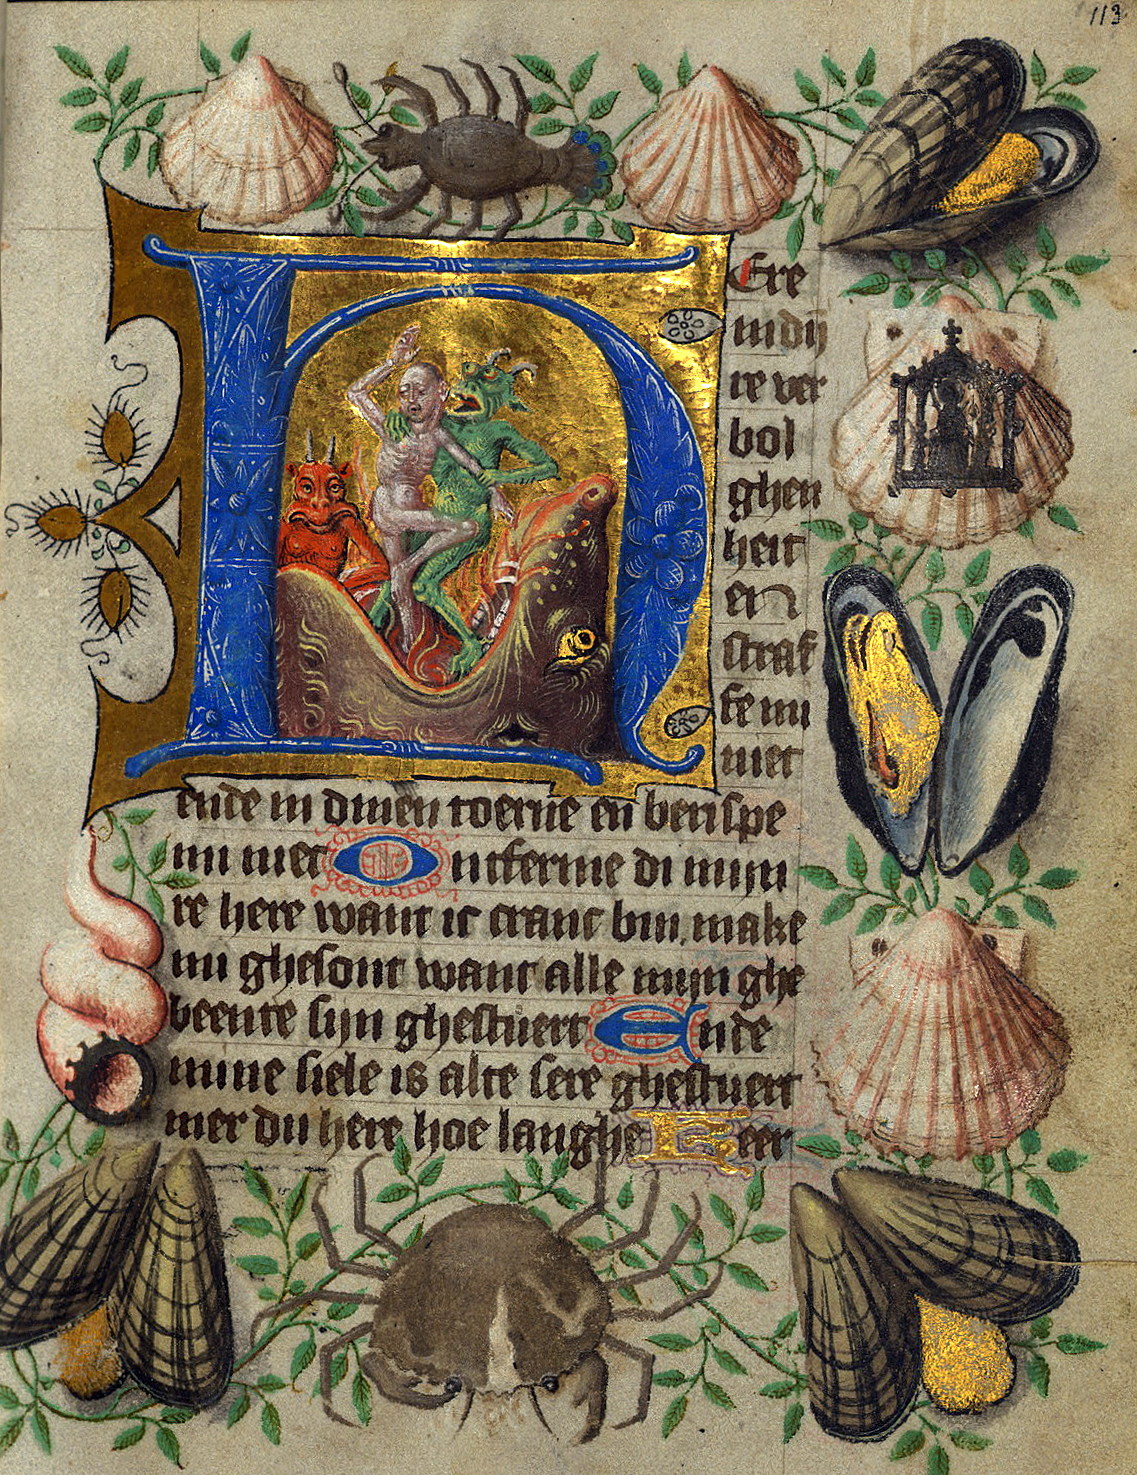 113
Here
in dij
re ver
bol
ghen
heit
en
straf
fe mi
niet
ende in dinen toerne en berispe
mi niet Ontferme di mijn
re here want ic cranc bin, make
mi ghesont want alle mijn ghe
beente sijn ghestuert Ende
mine siele is alte sere ghestuert
mer du here hoe langhe Keer